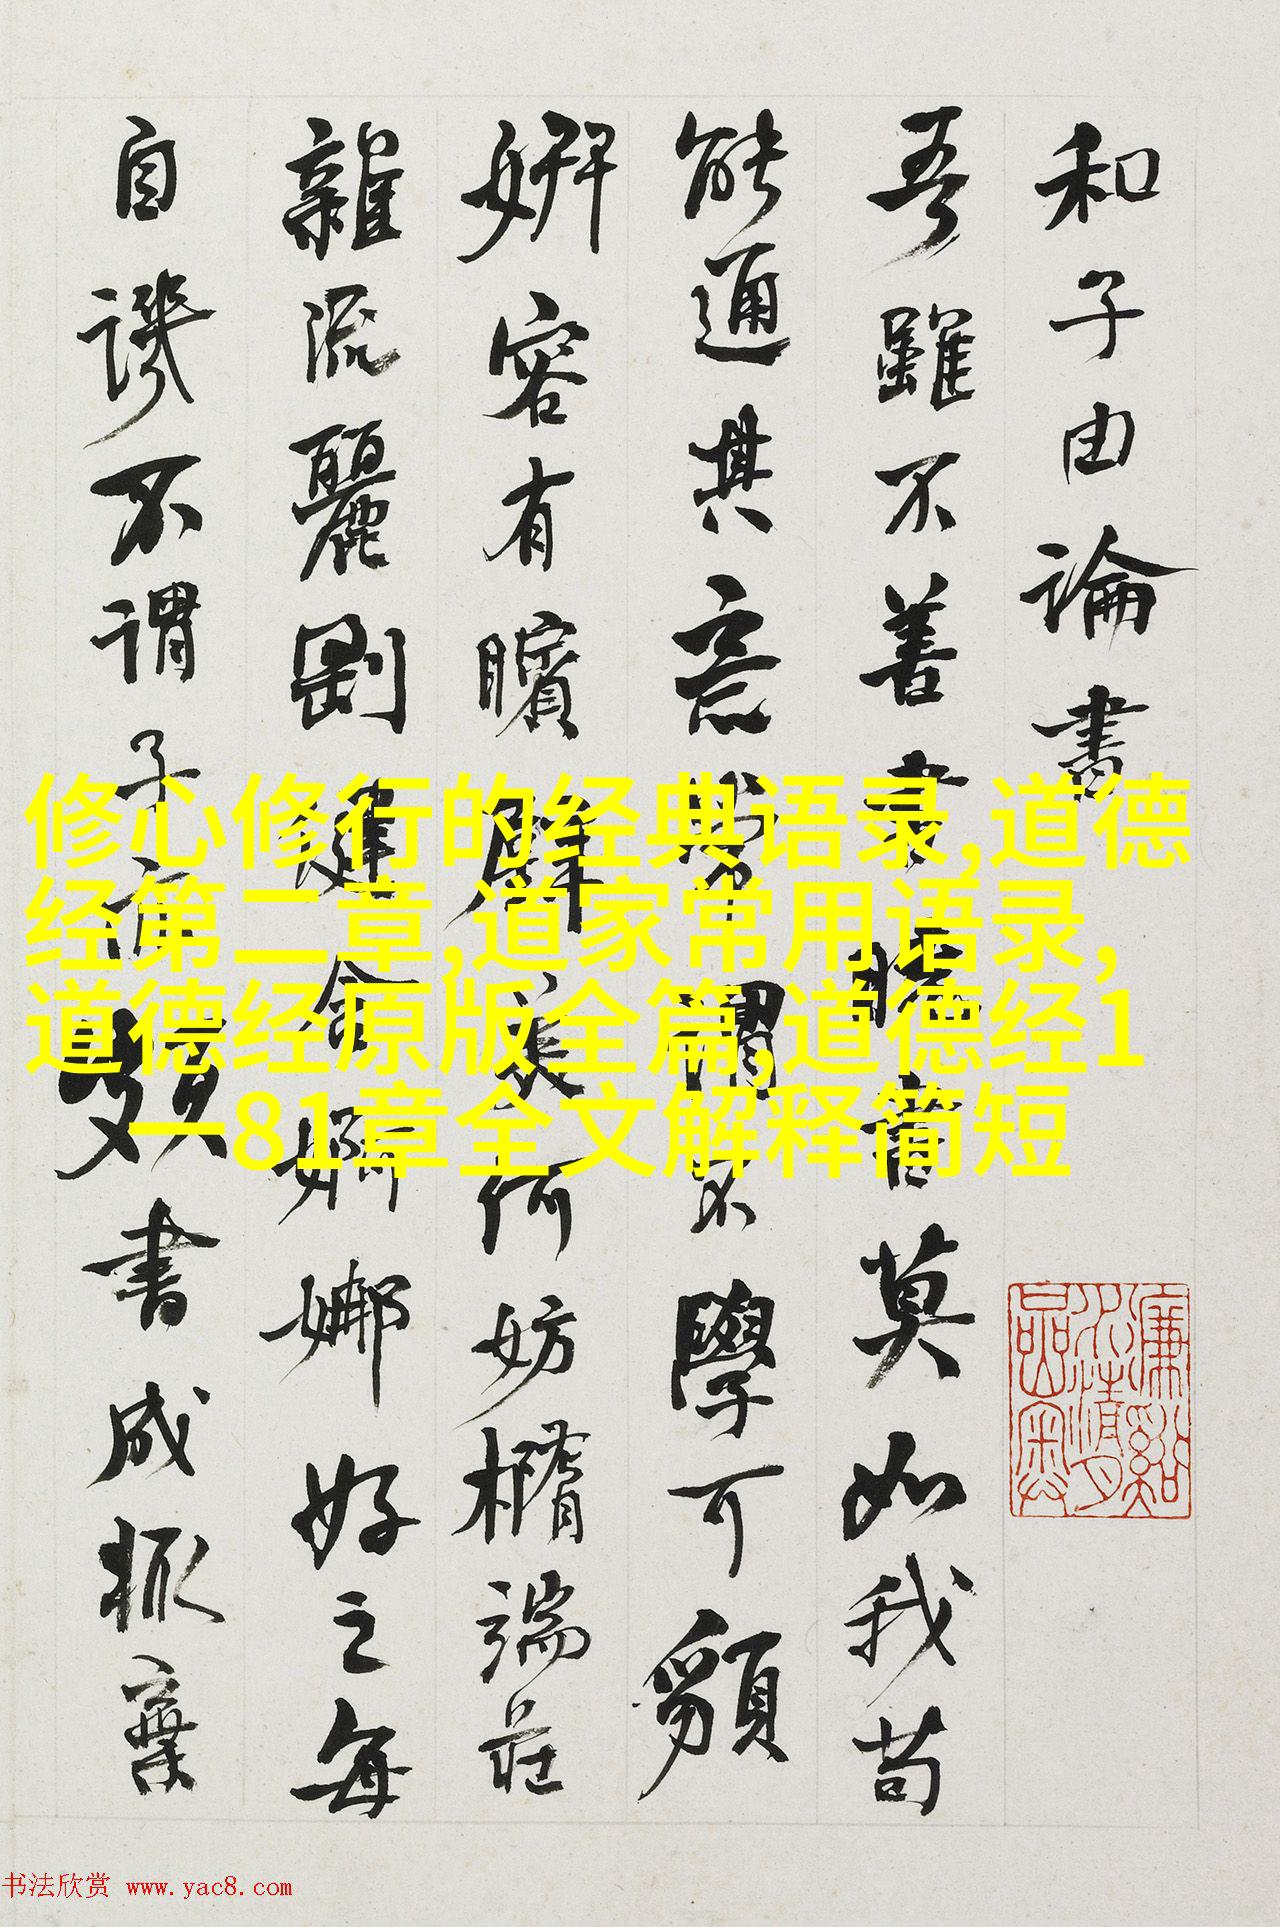 和子由論書
吾雖不善書曉書莫如我苟
能通其意常謂不學可貌
妍容有矉璧美何妨橢端莊
雜流麗剛健含婀娜好之每
自譏不謂子亦頗書成輒棄
修心修行的经典语录,道德
经第二章,道家常用语录,
道德经原版全篇,道德经1
一81章全文解释简短
书法欣赏 www.yac8.com